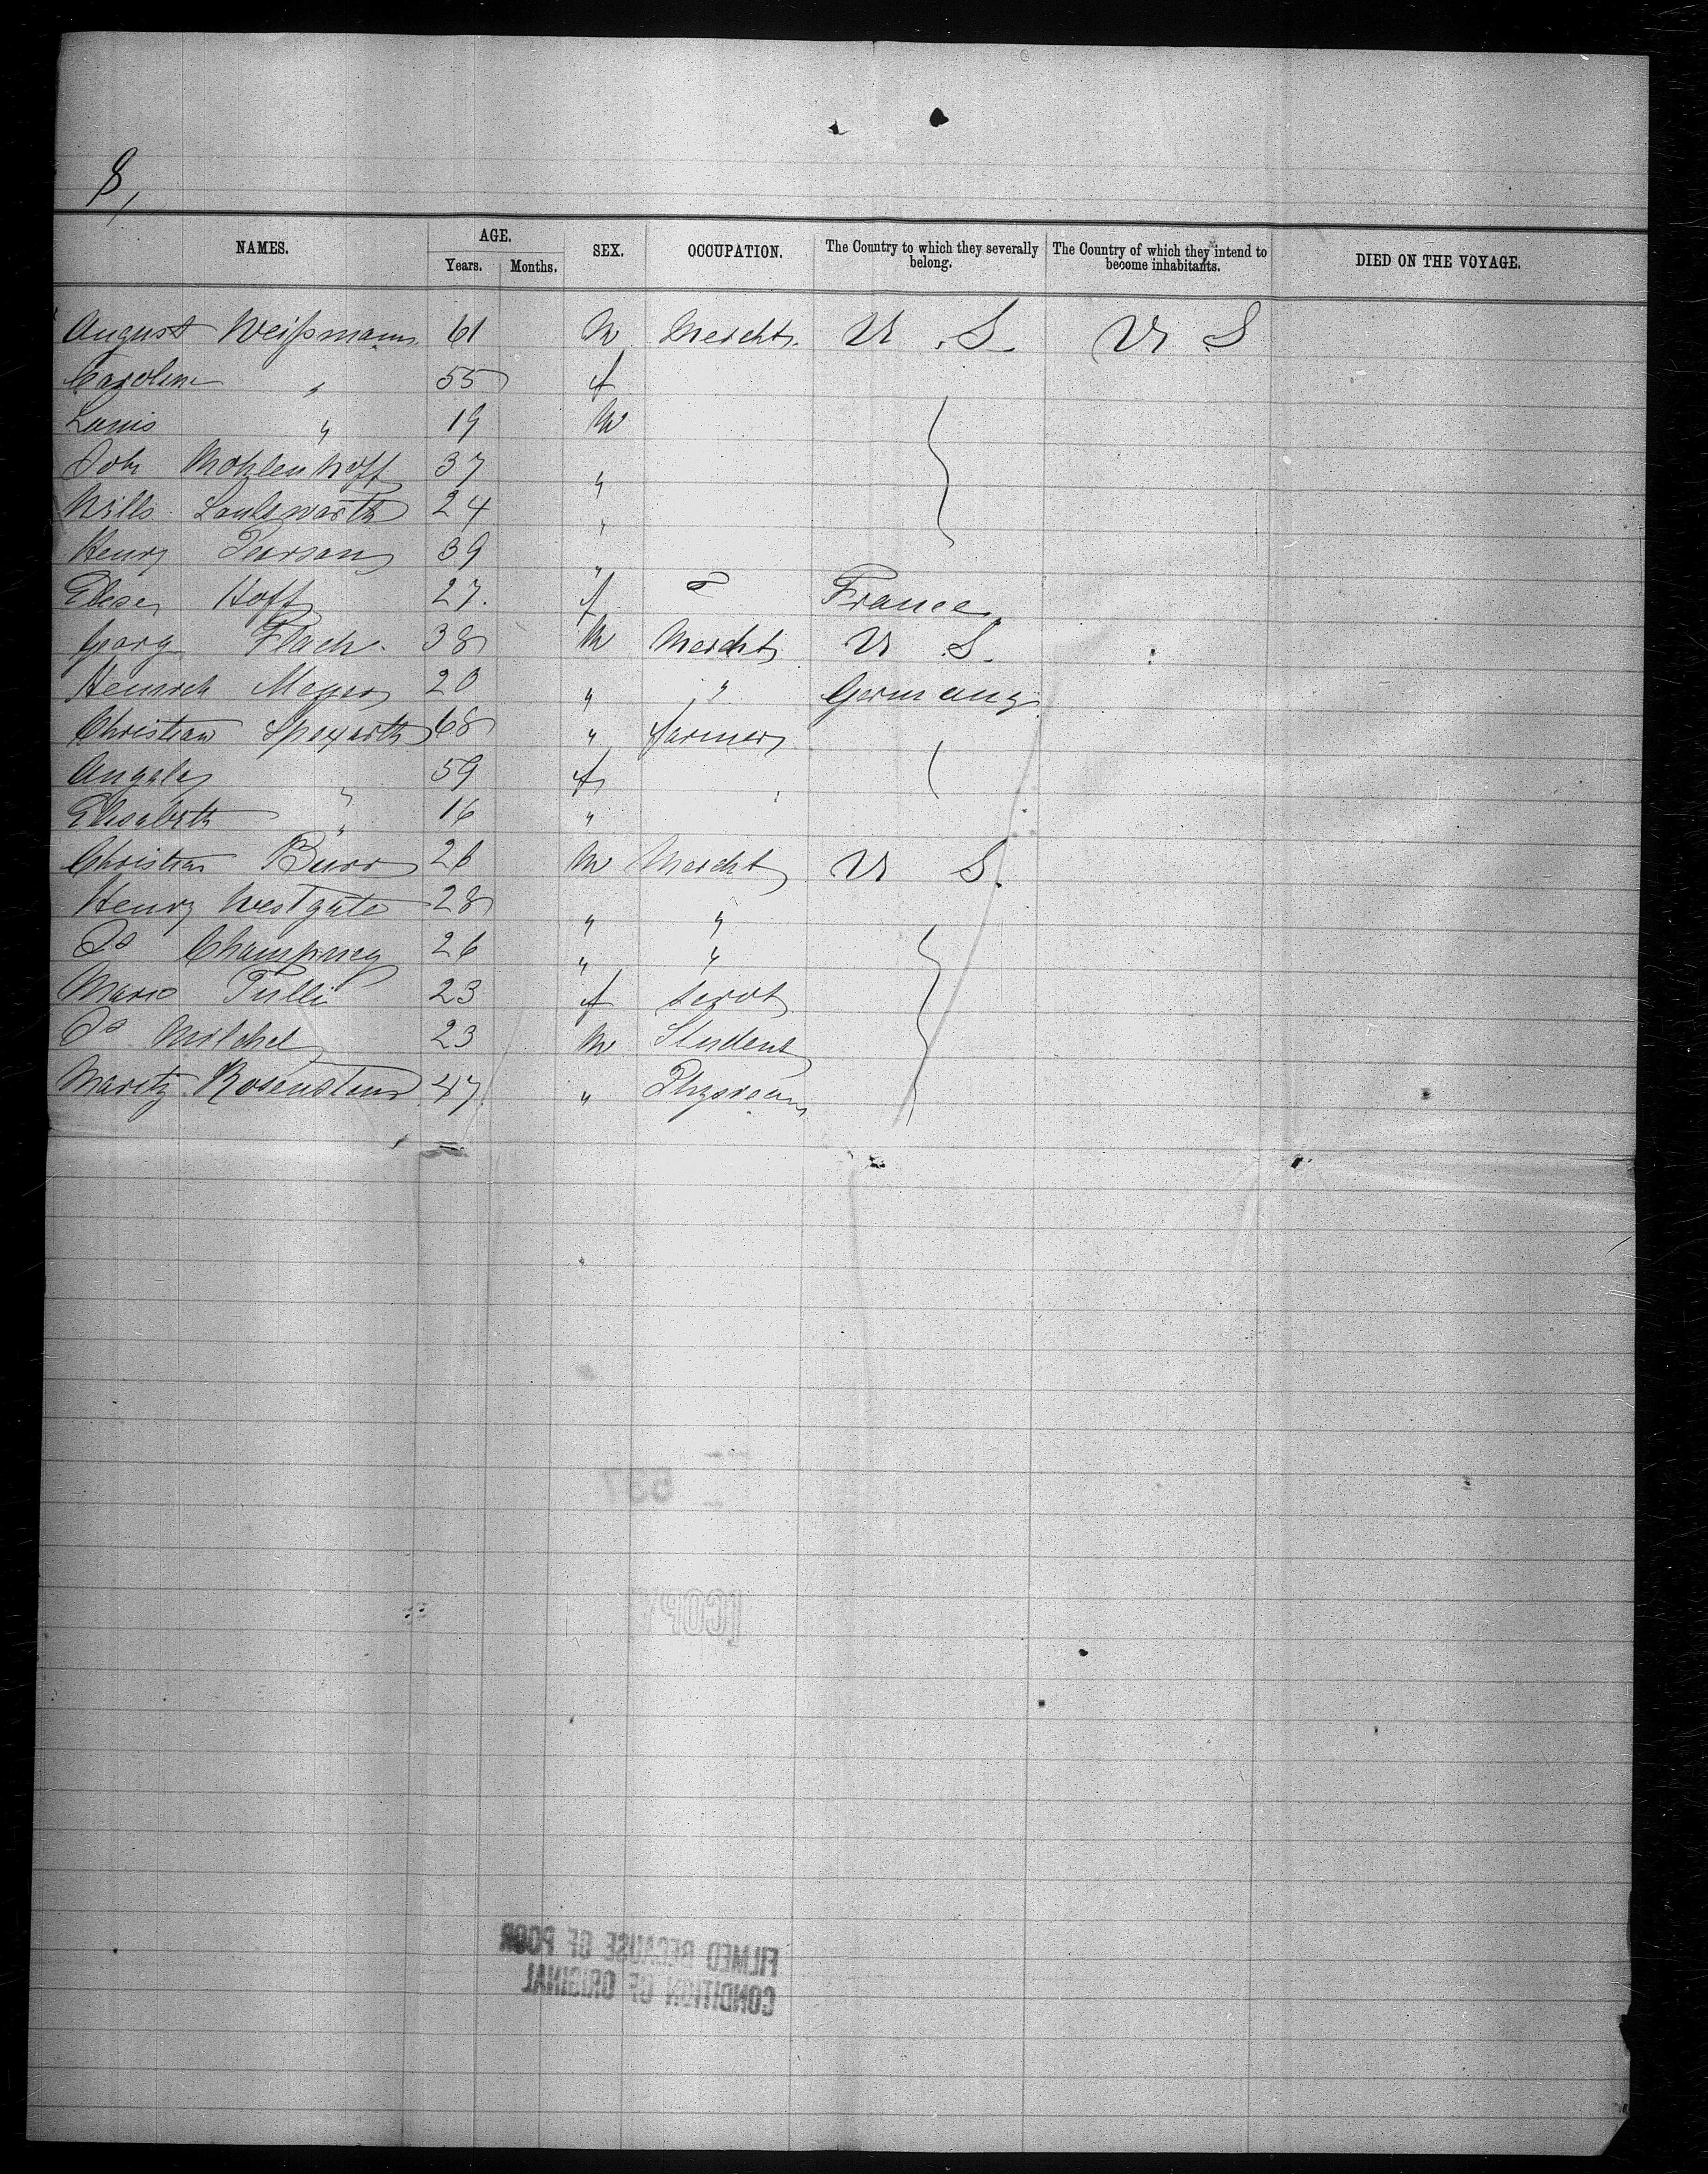 8,
NAMES. AGE. SEX. OCCUPATION. The Country to which they severally belong. The Country of which they intend to become inhabitants. DIED ON THE VOYAGE.
Years. Months.
August Weißmann 61 M Mercht. U. S. U S
Caroline " 55 f
Louis " 19 M
Joh Mohlenhoff 37 "
Wills 24 "
Henry Pearson 39 "
Elise Hoff 27. f — France
Georg Flach. 38 M Mercht U S.
Heinrich Meyer 20 " " Germany
Christian Spexarth 68 " farmer
Angela " 59 f
Elisabeth " 16 "
Christian Burr 26 M Mercht U S.
Henry Westgate 28 " "
Js Champney 26 " "
Marie Tulli 23 f servt
Js Mitchel 23 M Student
Moritz Rosenstein 47 " Physician
537
[COPY]
FILMED BECAUSE OF POOR
CONDITION OF ORIGINAL